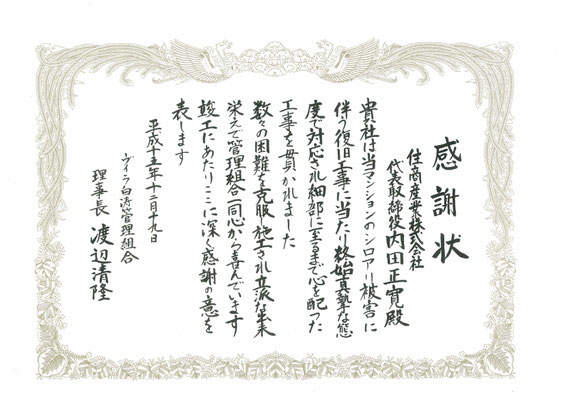 感謝状
住商産業株式会社
代表取締役内田正寛殿
貴社は当マンションのシロアリ被害に
伴う復旧工事に当たり終始真摯な態
度で対応され細部に至るまで心を配った
工事を貫かれました
数々の困難を克服し施工され立派な出来
栄えで管理組合一同心から喜んでいます
竣工にあたりここに深く感謝の意を
表します
平成十五年十二月十九日
ヴィラ白涛管理組合
理事長 渡辺清隆